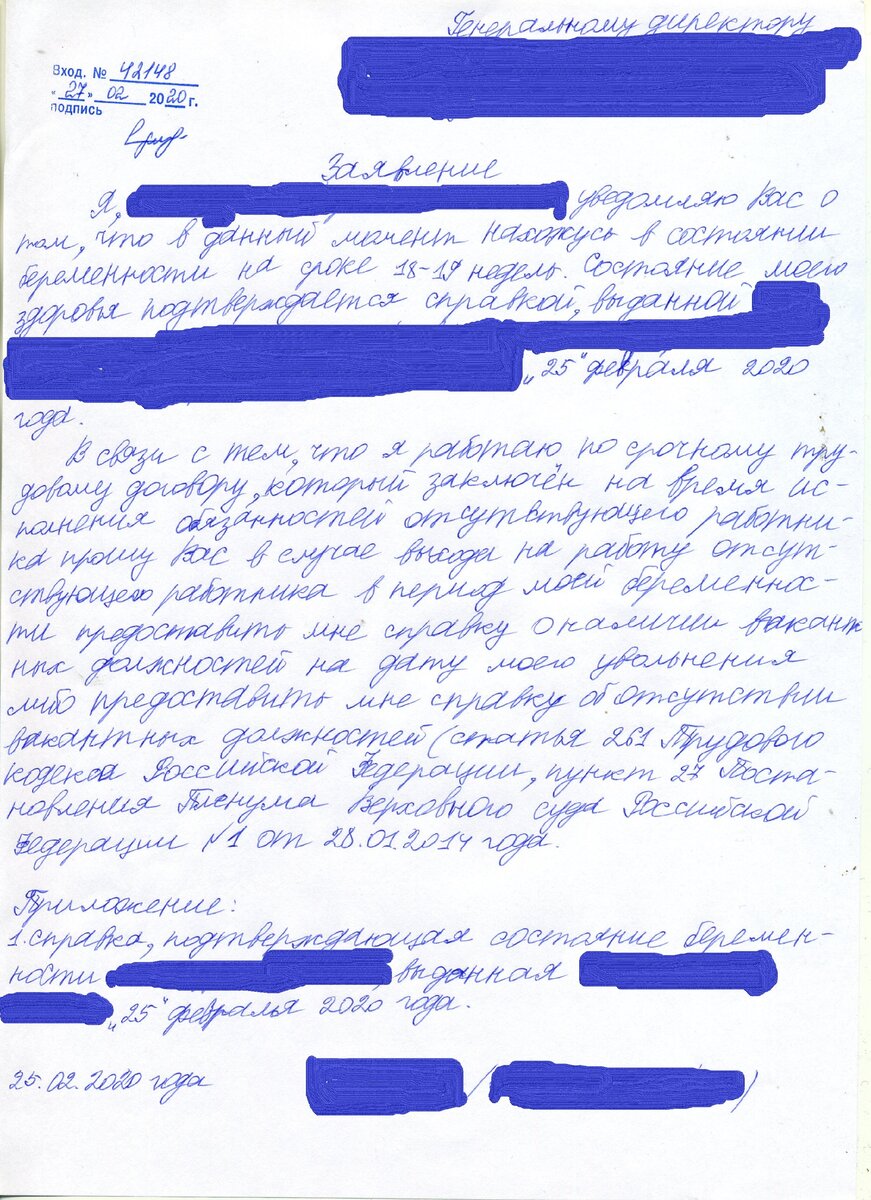 Генеральному директору
Вход. № 42148
"27" 02 2020 г.
подпись
Заявление
Я, уведомляю Вас о
том, что в данный момент нахожусь в состоянии
беременности на сроке 18-19 недель. Состояние моего
здоровья подтверждается справкой, выданной
"25" февраля 2020
года.
В связи с тем, что я работаю по срочному тру-
довому договору, который заключён на время ис-
полнения обязанностей отсутствующего работни-
ка прошу Вас в случае выхода на работу отсут-
ствующего работника в период моей беременнос-
ти предоставить мне справку о наличии вакант
ных должностей на дату моего увольнения
либо предоставить мне справку об отсутствии
вакантных должностей (статья 261 Трудового
кодекса Российской Федерации, пункт 27 Поста-
новления Пленума Верховного суда Российской
Федерации №1 от 28.01.2014 года.
Приложение:
1. справка, подтверждающая состояние беремен-
ности , выданная
"25" февраля 2020 года.
25.02.2020 года / )